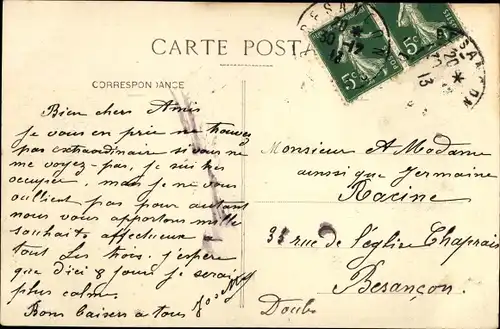 CARTE POSTA
CORRESPONDANCE
Bien chers Amis
je vous en prie ne trouvez
pas extraordinaire si vous ne
me voyez-pas, je suis très
occupée, mais je ne vous
oublient pas pour autant
nous vous apportons mille
souhaits affectueux
tout Les trois. j'espère
que d'ici 8 jours je serai
plus calme.
Bons baisers a tous
Monsieur A Madame
ainsi que Germaine
Racine
35 rue de l'église Chaprais
Besançon.
Doubs
5c
5c